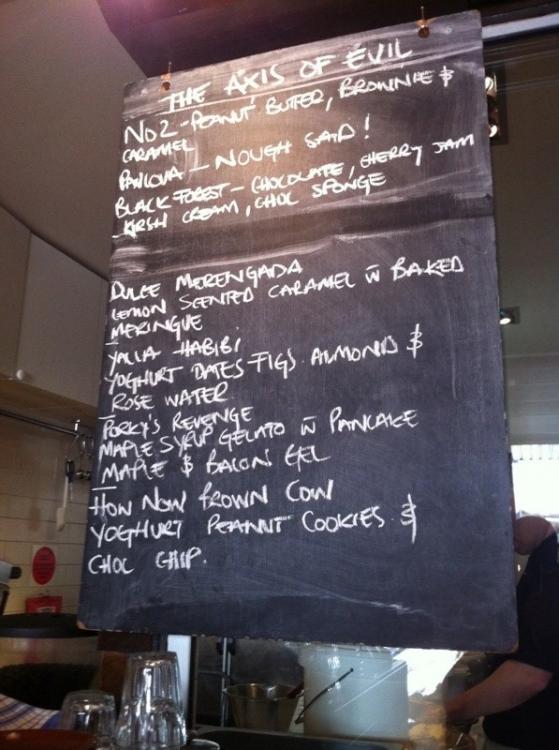 THE AXIS OF EVIL
NO2 - PEANUT BUTTER, BROWNIE &
CARAMEL
PAVLOVA - NOUGH SAID!
BLACK FOREST - CHOCOLATE, CHERRY JAM
KIRSH CREAM, CHOC SPONGE
DULCE MERENGADA
LEMON SCENTED CARAMEL W BAKED
MERINGUE
YALLA HABIBI
YOGHURT DATES FIGS ALMOND &
ROSE WATER
PORKY'S REVENGE
MAPLE SYRUP GELATO W PANCAKE
MAPLE & BACON GEL
HOW NOW BROWN COW
YOGHURT PEANUT COOKIES &
CHOC CHIP.